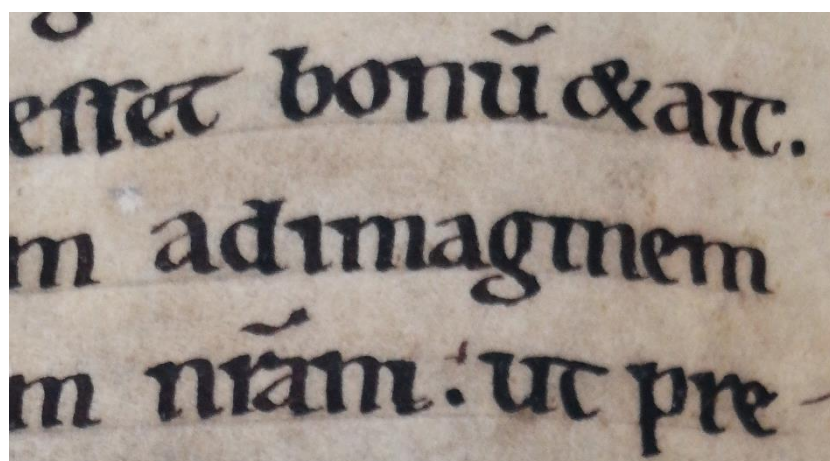 esset bonū & ait.
m ad imaginem
m nr̄am : ut pre-